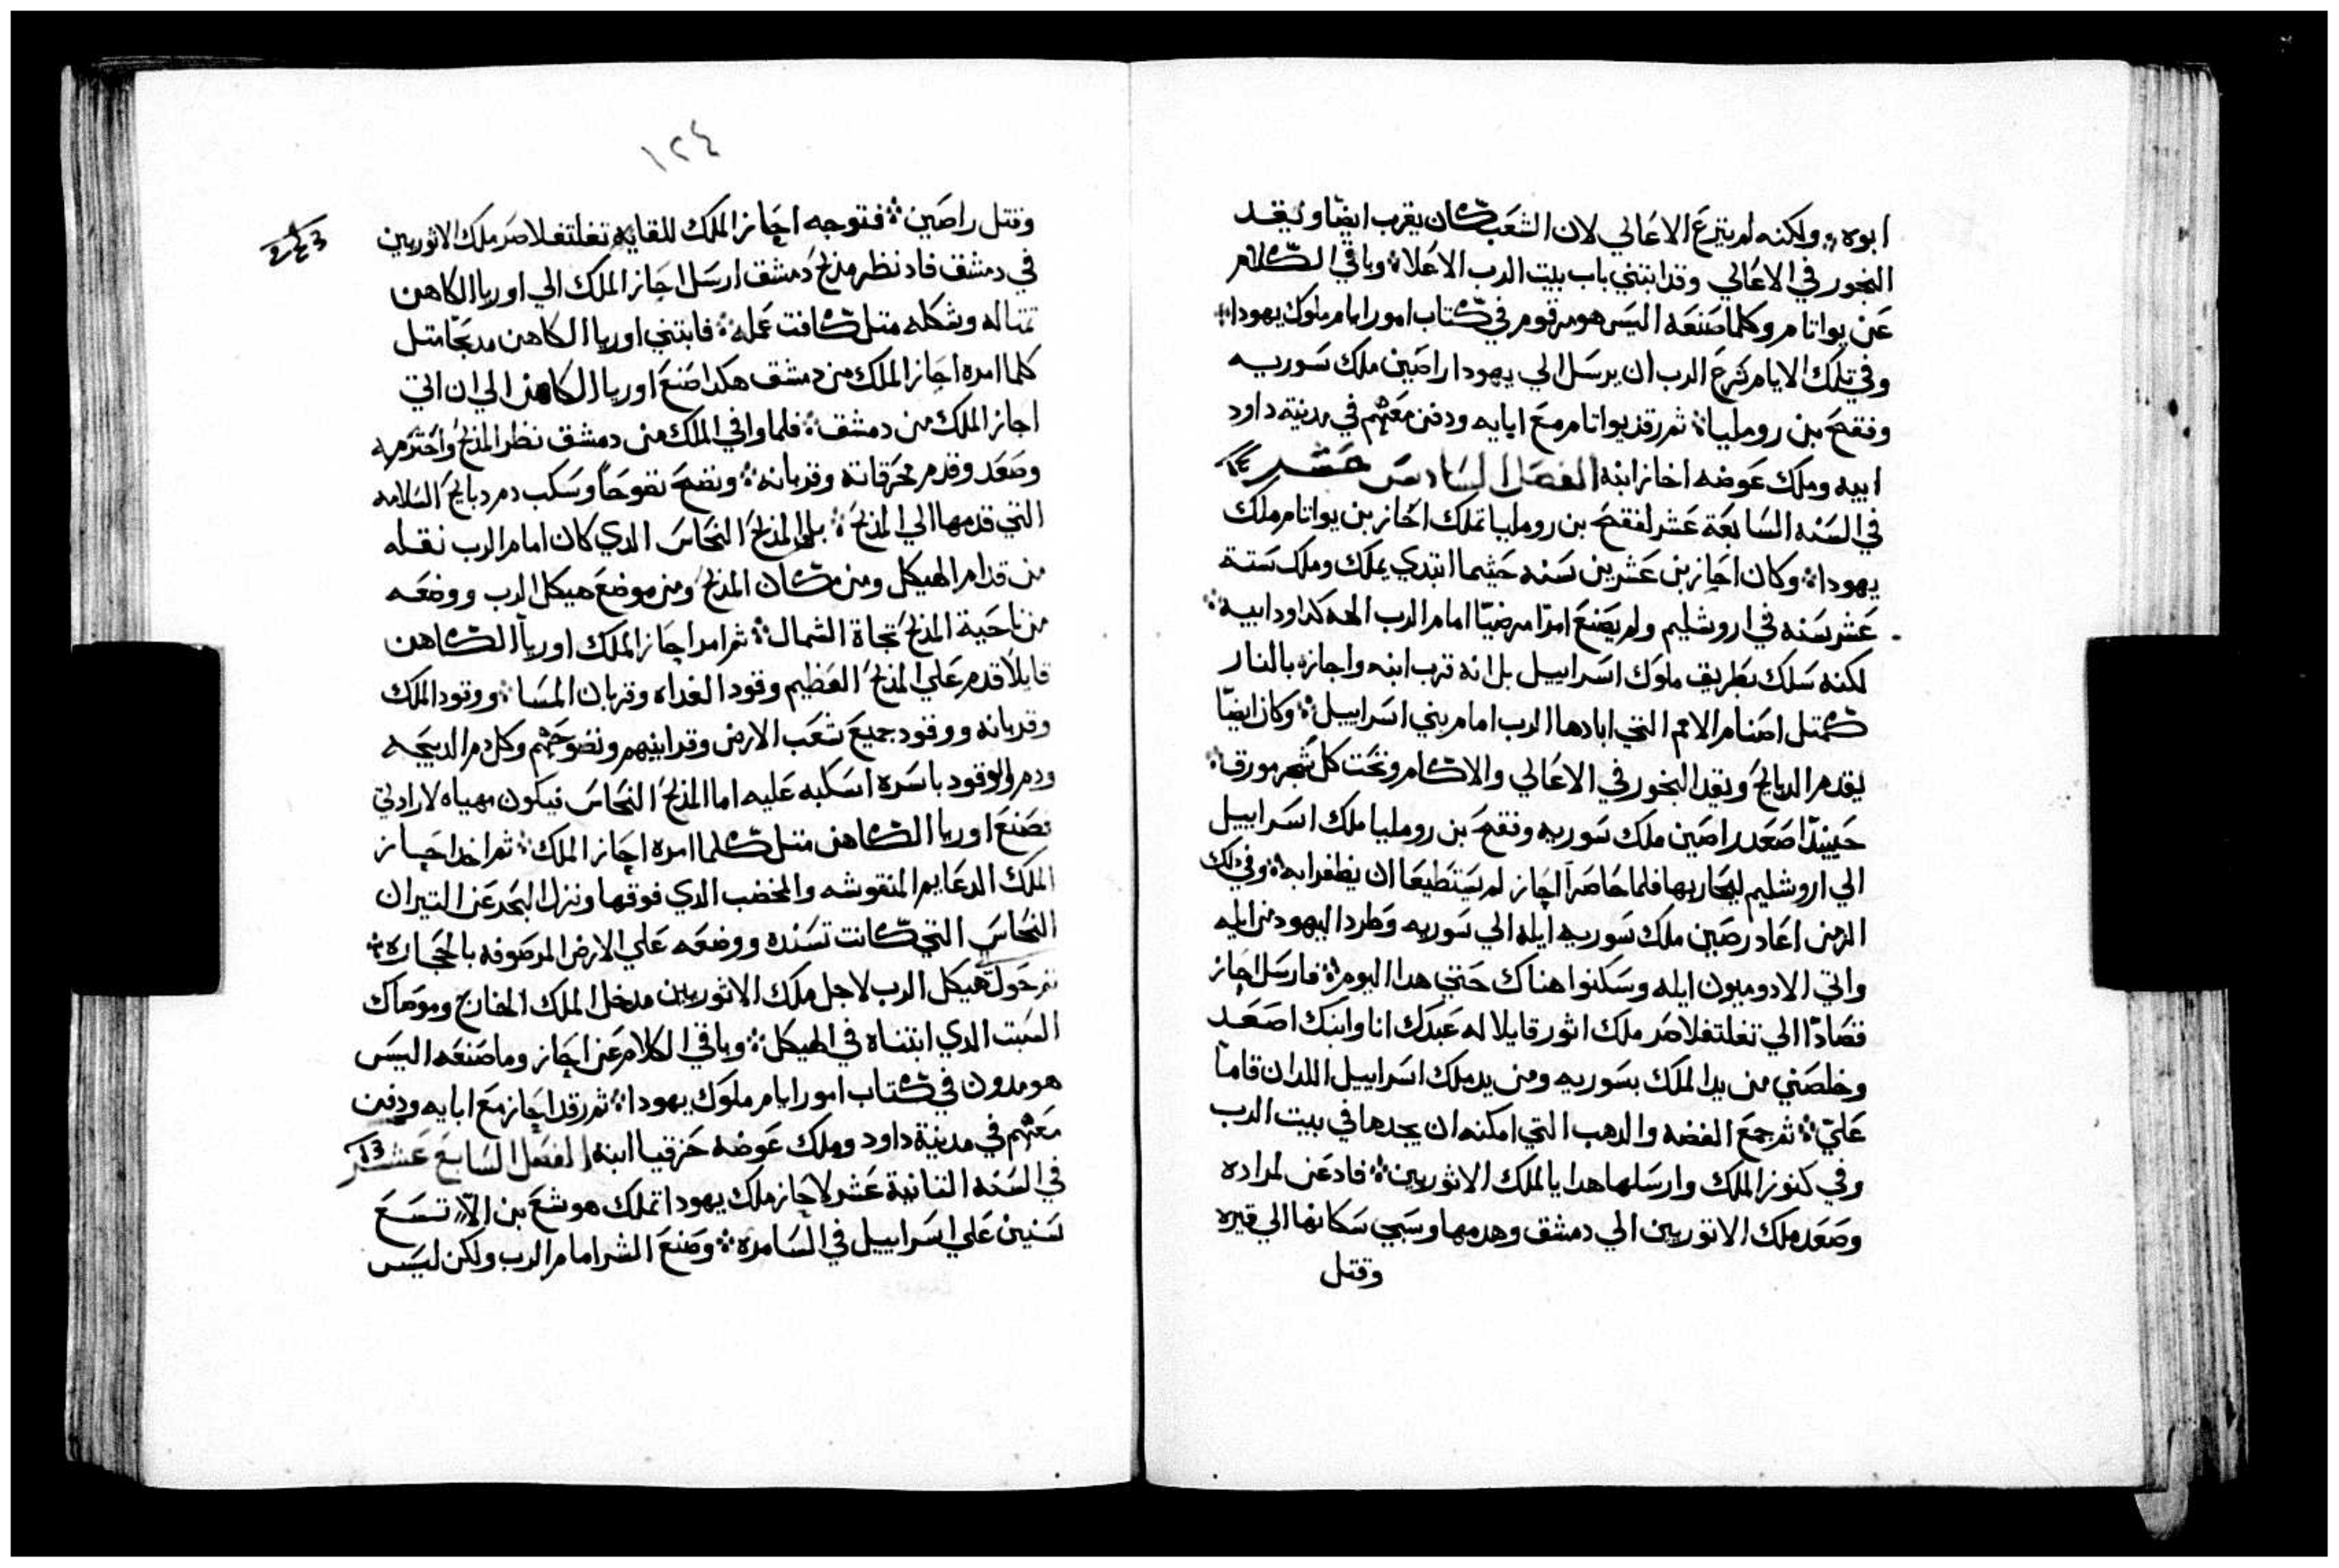 ابوه ولكنه لم ينزع الاعالي لان الشعب كان يقرب ايضا ويقد
البخور في الاعالي وقد ابتني باب بيت الرب الاعلا وباقي الكلام
عن يواتام وكلما صنعه اليس هو مرقوم في كتاب امور ايام ملوك يهودا
وفي تلك الايام شرع الرب ان يرسل الي يهودا راصين ملك سوريه
وفقح بن رومليا ثم رقد يواتام مع ابايه ودفن معهم في مدينة داود
ابيه وملك عوضه احاز ابنه الفصل السادس عشر
في السنه السابعة عشر لفقح بن رومليا تملك احاز بن يواتام ملك
يهودا وكان احاز بن عشرين سنه حيثما ابتدي يملك وملك ستة
عشر سنه في اروشليم ولم يصنع امرا مرضيا امام الرب الهه كداود ابيه
لكنه سلك بطريق ملوك اسراييل بل انه قرب ابنه واجازه بالنار
كمتل اصنام الامم التي ابادها الرب امام بني اسراييل وكان ايضا
يقدم الدبايح ويقد البخور في الاعالي والاكام وتحت كل شجر مورق
حينيدا صعد راصين ملك سوريه وفقح بن رومليا ملك اسراييل
الي اروشليم ليحاربها فلما حاصرا احاز لم يستطيعا ان يظفرا به وفي دلك
الزمن اعاد رصين ملك سوريه ايله الي سوريه وطرد اليهود من ايله
واتي الادوميون ايله وسكنوا هناك حتي هدا اليوم فارسل احاز
قصادا الي تغلتفلاصر ملك اثور قايلا له عبدك انا وابنك اصعد
وخلصني من يد الملك بسوريه ومن يد ملك اسراييل اللدان قاما
علي ثم جمع الفضه والدهب التي امكنه ان يجدها في بيت الرب
وفي كنوز الملك وارسلها هدايا لملك الاثوريين فادعن لمراده
وصعد ملك الاتوريين الي دمشق وهدمها وسبي سكانها الي قيره
وقتل
١٢٤
وقتل راصين فتوجه احاز الملك للقايه تغلتفلاصر ملك الاثوريين
في دمشق فاد نظر مدبح دمشق ارسل احاز الملك الي اوريا الكاهن
تمتاله وشكله متل كافت عمله فابتني اوريا الكاهن مدبحا متل
كلما امره احاز الملك من دمشق هكدا صنع اوريا الكاهن الي ان اتي
احاز الملك من دمشق فلما وافي الملك من دمشق نظر المدبح واحترمه
وصعد وقدم محرقاته وقربانه ونضح نضوحا وسكب دم دبايح السلامه
التي قدمها الي المدبح المدبح النحاس الدي كان امام الرب نقله
من قدام الهيكل ومن مكان المدبح ومن موضع هيكل الرب ووضعه
من ناحية المدبح تجاة الشمال ثم امر احاز الملك اوريا الكاهن
قايلا قدم علي المدبح العظيم وقود الغداه وقربان المسا ووقود الملك
وقربانه ووقود جميع شعب الارض وقرابينهم ونضوحهم وكل دم الدبيحه
ودم الوقود باسره اسكبه عليه اما المدبح النحاس فيكون مهياه لارادتي
فصنع اوريا الكاهن متل كلما امره احاز الملك ثم اخد احاز
الملك الدعايم المنقوشه والمخضب الدي فوقها ونزل البحر عن التيران
النحاس التي كانت تسنده ووضعه علي الارض المرصوفه بالحجاره
ثم حول هيكل الرب لاجل ملك الاثوريين مدخل الملك الخارج وموصاك
السبت الدي ابتناه في الهيكل وباقي الكلام عن احاز وما صنعه اليس
هو مدون في كتاب امور ايام ملوك يهودا ثم رقد احاز مع ابايه ودفن
معهم في مدينة داود وملك عوضه حزقيا ابنه الفصل السابع عشر
في السنه التانية عشر لاحاز ملك يهودا تملك هوشع بن الا تسع
سنين علي اسراييل في السامره وصنع الشر امام الرب ولكن ليس